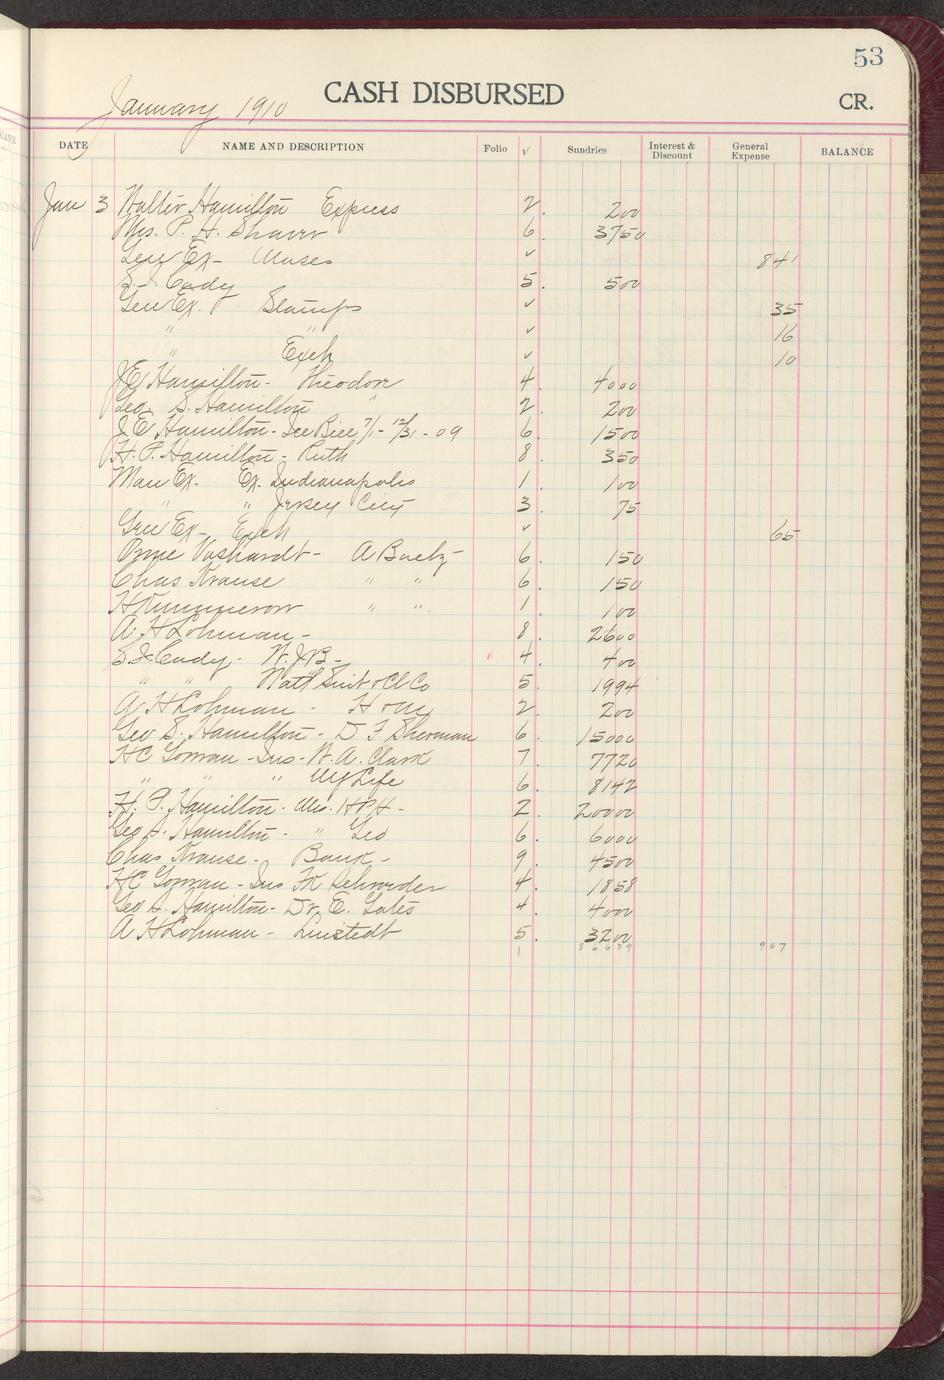 53
January 1910 CASH DISBURSED CR.
DATE NAME AND DESCRIPTION Folio √ Sundries Interest & Discount General Expense BALANCE
Jan 3 Walter Hamilton Express 2. 200
Mrs. P. H. 6. 3750
Gen Ex- Moses √ 841
S. Cady 5. 500
Gen Ex. Stamps √ 35
" " √ 16
" Exch √ 10
J E Hamilton- Theodore 4. 4000
Geo. S. Hamilton " 2. 200
J. E Hamilton- Ice Bill 7/1- 12/31 - 09 6. 1500
H. P. Hamilton- Ruth 8. 350
Man Ex. Ex. Indianapolis 1. 100
" " Jersey City 3. 75
Gen Ex- Exch √ 65
- A 6. 150
Chas Krause " " 6. 150
H " " 1. 100
A. H Lohman - 8. 2600
Cady- W. J. B- 4. 400
" " Nat'l Suit & Cl Co 5. 1994
A H Lohman - 2. 200
Geo S. Hamilton- D F. Sherman 6. 15000
HC - Ins- W. A. Clark 7. 7720
" " " Life 6. 8142
H. P. Hamilton- HPH- 2. 20000
Geo S. Hamilton- " Geo 6. 6000
Chas Krause- Bank- 9. 4500
HC - Ins Fk Schroeder 4. 1858
Geo S. Hamilton- Dr. E. Gates 4. 4000
A H Lohman - Linstedt 5. 3200
1 967